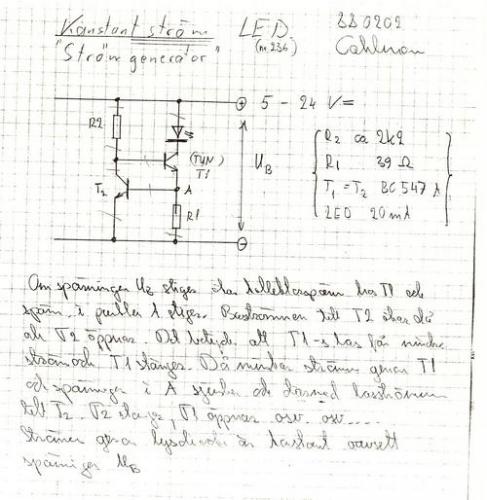 Konstant ström LED. 880202
"Ström generator" (nr.236) Cahlman
5 - 24 V=
R2
(TUN)
T1
UB
T2
A
R1
R2 ca 2k2
R1 39 Ω
T1 = T2 BC547 A
LED 20 mA
Om spänningen UB stiger ökar kollektorspänn hos T1 och
spänn. i punkten A stiger. Basströmmen till T2 ökar då
att T2 öppnar. Det betyder att T1-s bas får mindre
ström och T1 stänger. Då minskar strömmen genom T1
och spänningen i A sjunker och därmed basströmmen
till T2. T2 stänger, T1 öppnar osv. osv....
Strömmen genom lysdioden är konstant oavsett
spänningen UB